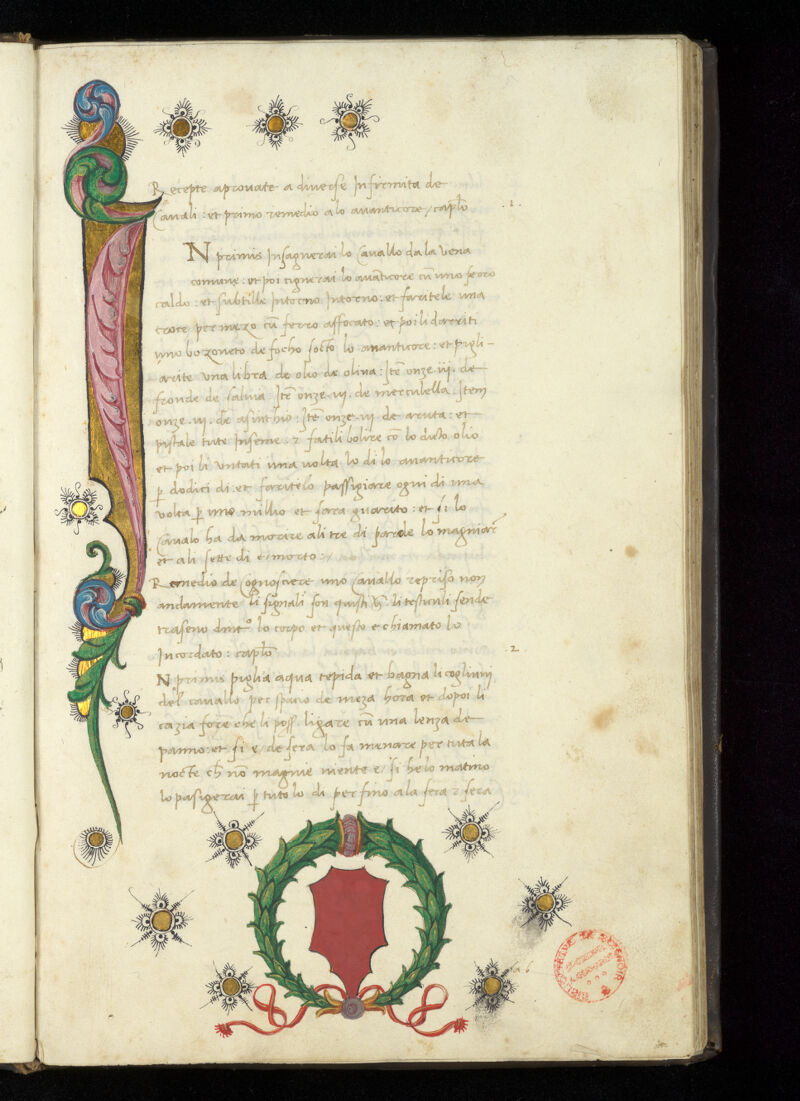 Recepte aprouate a diuerse Infirmita de
Cauali : et primo remedio a lo auanticore / caplo
.1.
N primis Insagnerai lo Cauallo da la vena
comune : et poi cignerai lo auanticore cu uno ferro
caldo : et subtille Intorno Intorno : et faritele una
croce per mezo cu ferro affocato : et poi li dariti
uno bo zoneto de focho socto lo auanticore : et pigli-
arite una libra de olio de oliua : Ite onze .iii. de
fronde de saluia Ite onze .vi. de merculella Item
onze .vi. de asinthio : Ite onze .vi de aruta : et
pistale tute Inseme : & fatili bolire co lo dicto olio
et poi li untati una uolta lo di lo auanticore
p dodici di : et faritelo passigiare ogni di una
uolta p uno millio et sara guarito : et si lo
Caualo ha da morire ali tre di parde lo magniar
et ali sette di e / morto :
Remedio de Cognosciere uno Cauallo repriso non
andamente li signali son quisti li testiculi sende
traseno dint lo corpo et questo e chiamato lo
Incordato : caplo
.2.
N primis piglia aqua tepida et bagna li cogliuni
del cauallo per spacio de meza hora et dopoi li
cazia fore che li poss ligare cu una lenza de
panno : et si e / de sera lo fa menare per tuta la
nocte ch no magnie niente e / si he lo matino
lo pasigerai p tuto lo di per fino a la sera & sera